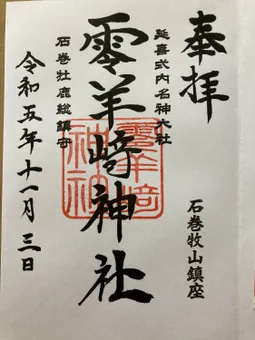 奉拝
石巻牧山鎮座
延喜式内名神大社
零羊崎神社
石巻牡鹿総鎮守
零羊崎神社
令和五年十一月三日